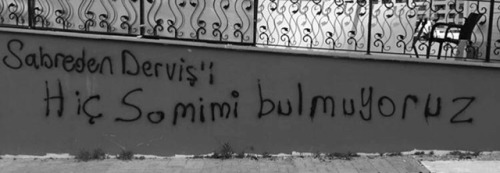 Sabreden Derviş'i
Hiç Samimi bulmuyoruz